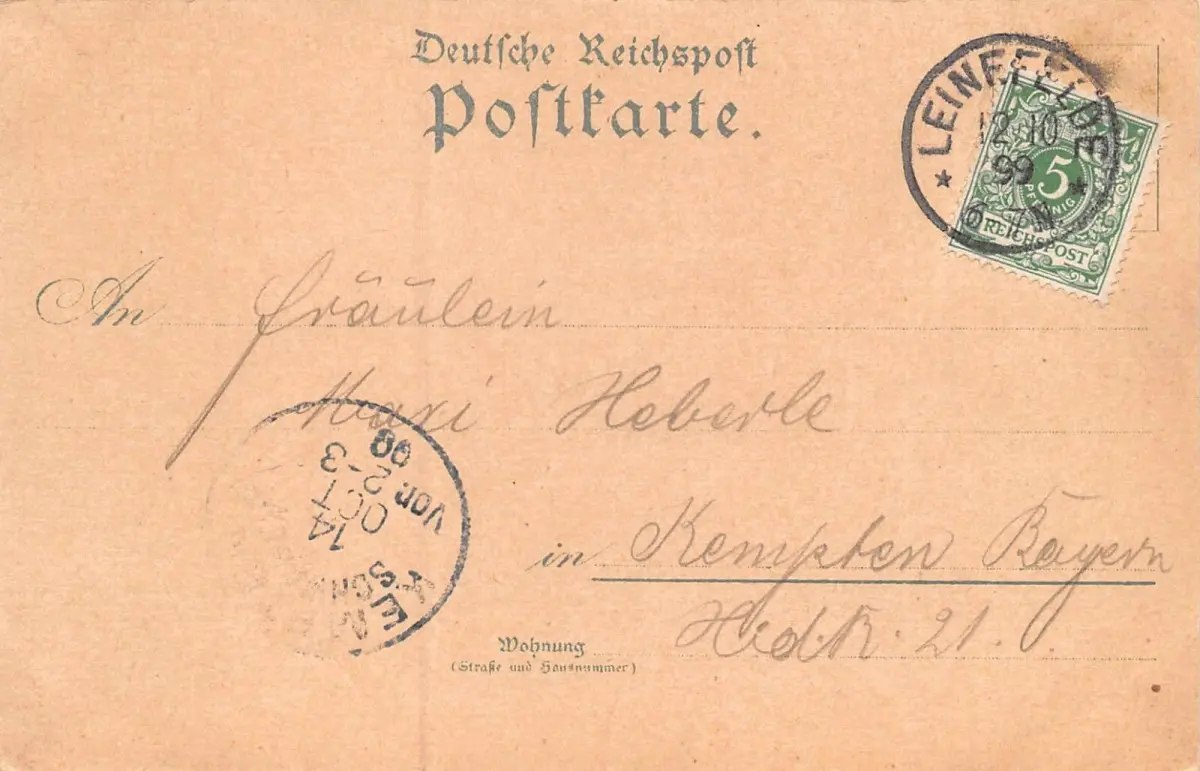 Deutsche Reichspost
Postkarte.
LEINEFELDE
12 10
99
6-7N
5
PFENNIG
REICHSPOST
An Fräulein
Maxi Heberle
in Kempten Bayern
Hdk. 21.
Wohnung
(Straße und Hausnummer)
14
OCT
Vor. 2-3
99